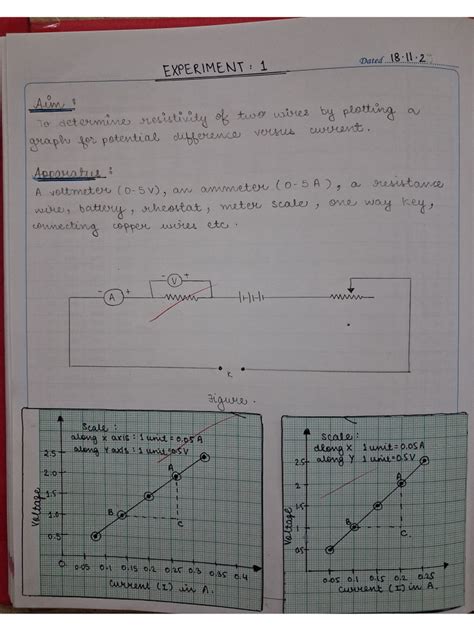 EXPERIMENT : 1
Dated 18.11.2
Aim :
To determine resistivity of two wires by plotting a
graph for potential difference versus current.
Apparatus :
A voltmeter (0-5V), an ammeter (0-5A), a resistance
wire, battery, rheostat, meter scale, one way key,
connecting copper wires etc.
- V +
- A +
K
Figure.
Scale :
along X axis : 1 unit = 0.05 A
along Y axis : 1 unit = 0.5V
2.5
2.0
1.5
1.0
0.5
0
Voltage
A
B
C
0.05 0.1 0.15 0.2 0.25 0.3 0.35 0.4
Current (I) in A.
Scale :
along X 1 unit = 0.05A
along Y 1 unit = 0.5V
2.5
2.0
1.5
1.0
0.5
Voltage
A
B
C
0.05 0.1 0.15 0.2 0.25
Current (I) in A.